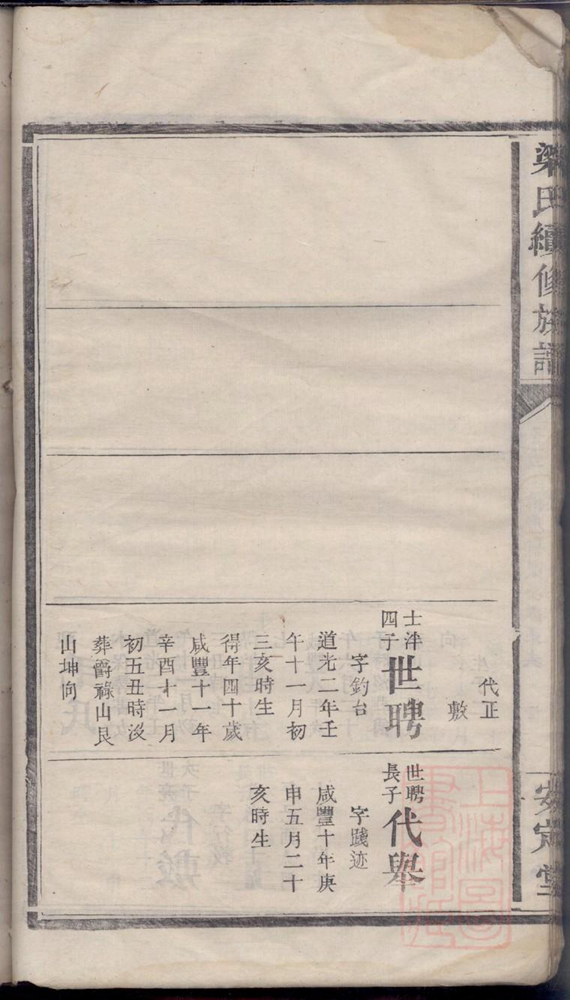 梁氏續修族譜
安定堂
代正
敷
士泮
四子
世聘
字釣台
道光二年壬
午十一月初
三亥時生
得年四十歲
咸豐十一年
辛酉十一月
初五丑時沒
葬爵祿山艮
山坤向
世聘
長子
代舉
字踐迹
咸豐十年庚
申五月二十
亥時生
上海圖書館藏